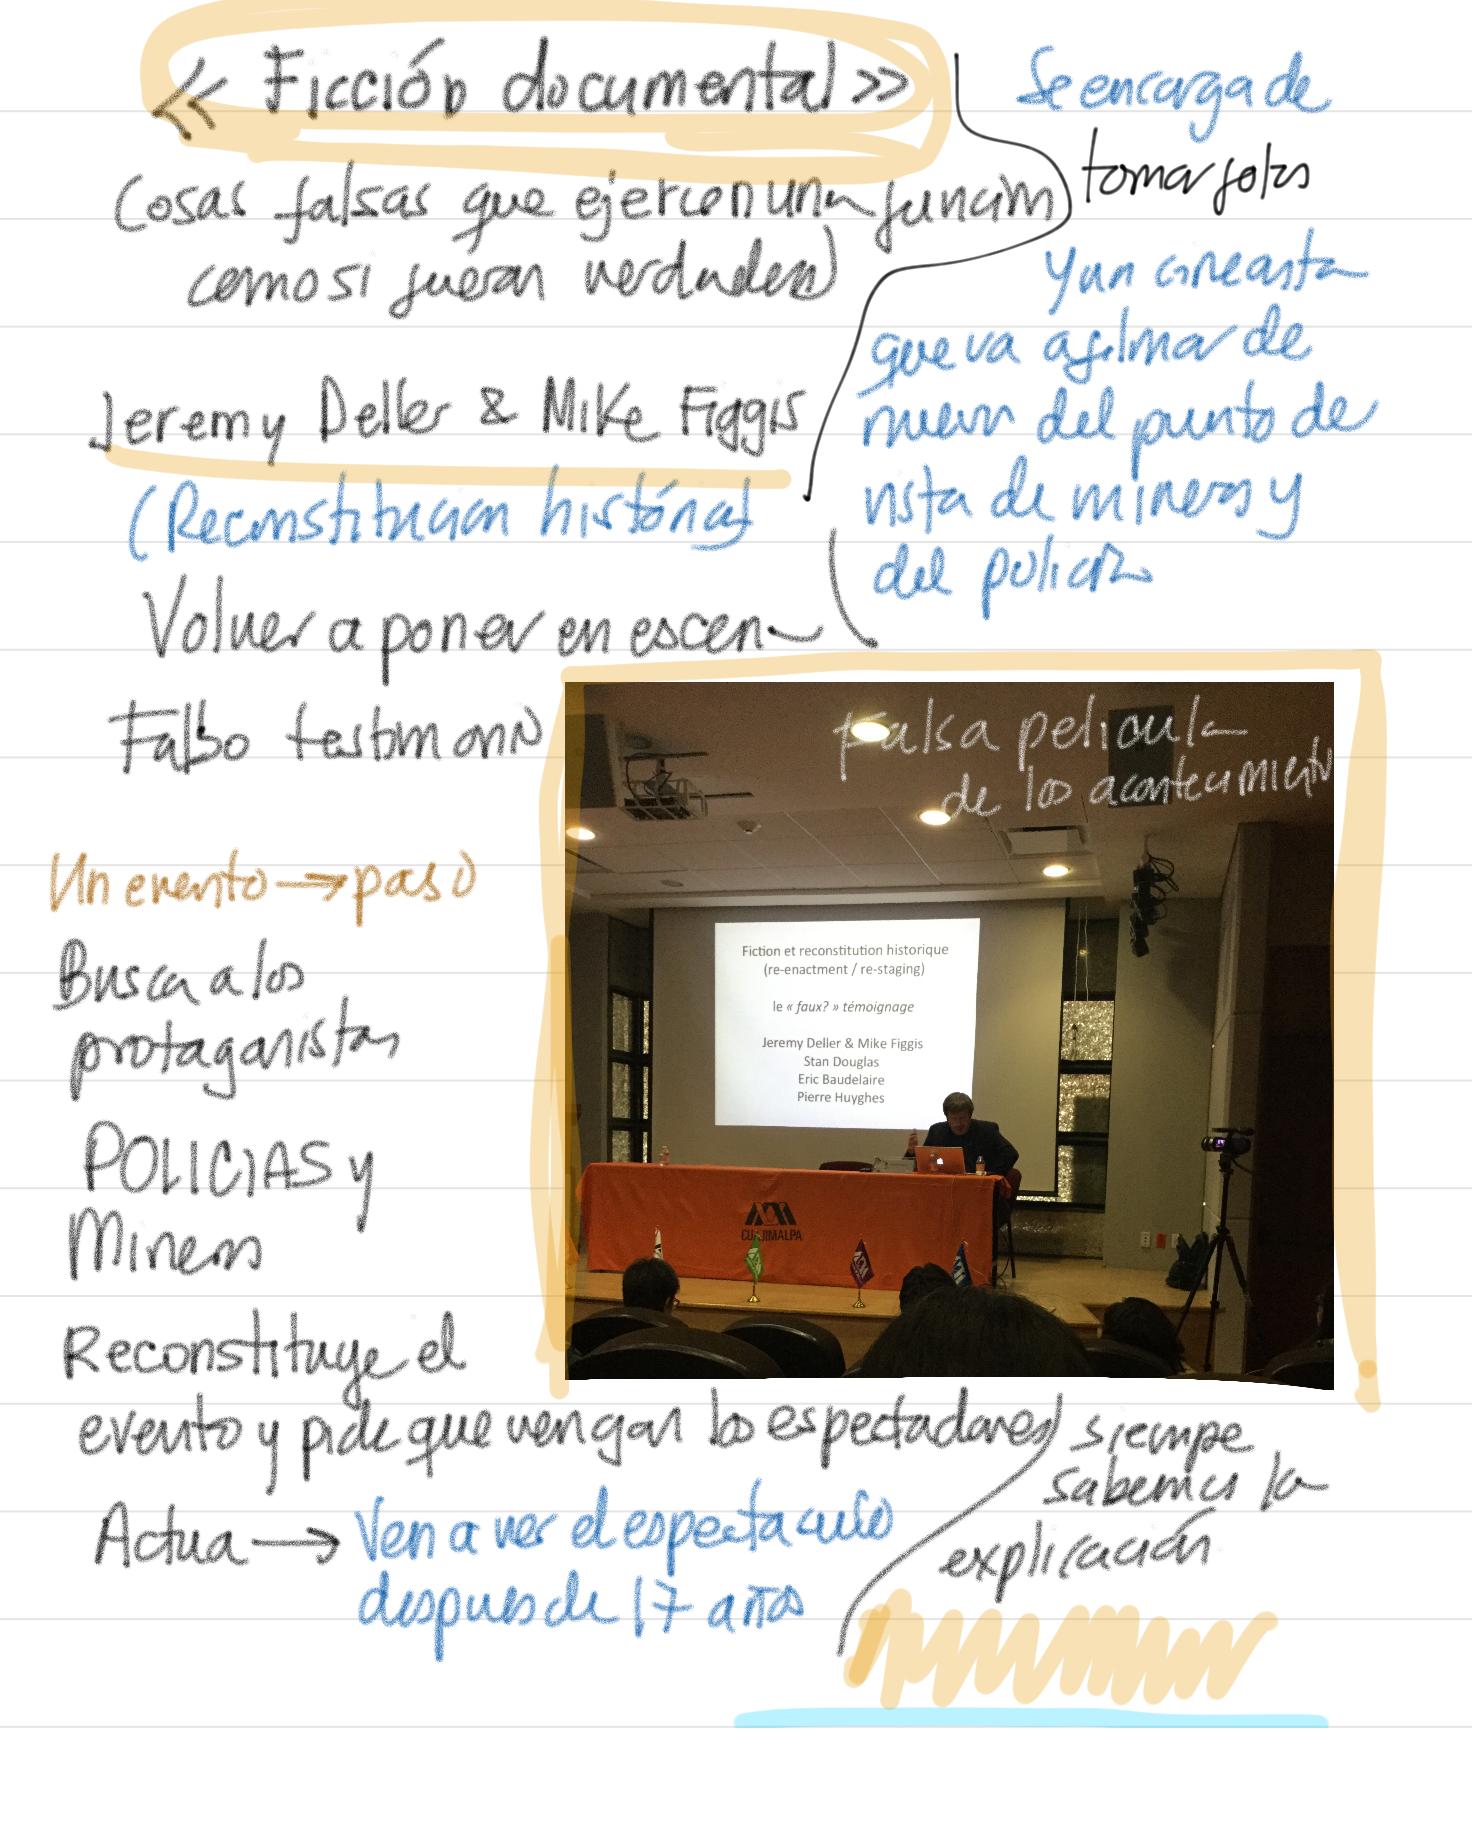 « Ficción documental »
Cosas falsas que ejercen una función
como si fueran verdades
Jeremy Deller & Mike Figgis
(Reconstitucion histórica)
Volver a poner en escena
Falso testimonio
Un evento → paso
Busca a los
protaganistas
POLICIAS y
Mineros
Reconstituye el
evento y pide que vengan los espectadores
Actua → Ven a ver el espectaculo
despues de 17 años
Se encarga de
tomar fotos
Y un cineasta
que va a filmar de
nuevo del punto de
vista de mineros y
del policia
Falsa pelicula
de los acontecimiento
Fiction et reconstitution historique
(re-enactment / re-staging)
le « faux? » témoignage
Jeremy Deller & Mike Figgis
Stan Douglas
Eric Baudelaire
Pierre Huyghes
CUAJIMALPA
siempre
sabemos la
explicación